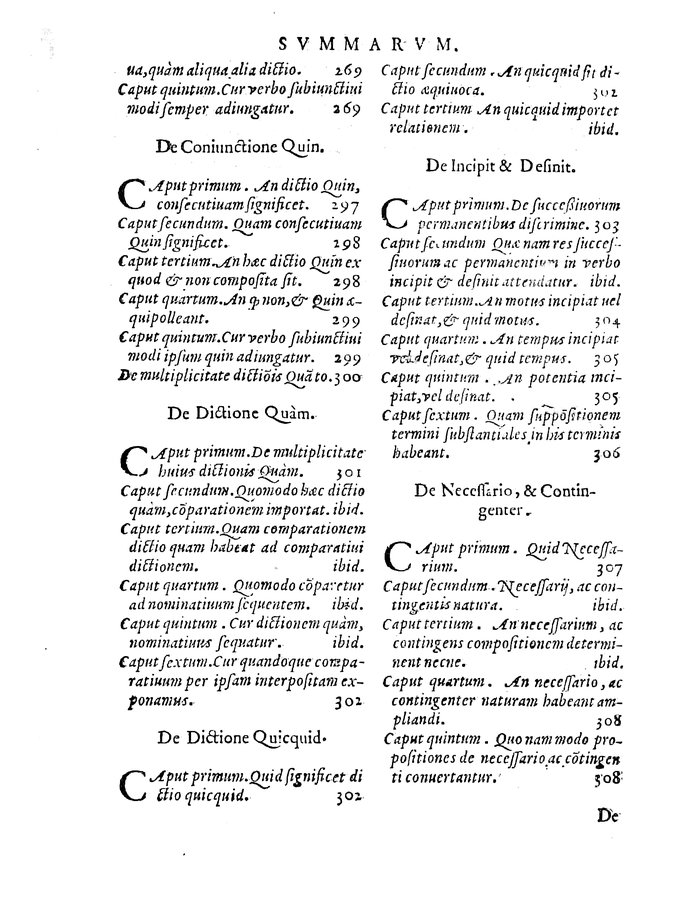 SVMMARVM.
ua, quàm aliqua alia dictio. 269
Caput quintum. Cur verbo ſubiunctiui
modi ſemper adiungatur. 269
De Coniunctione Quin.
CAput primum. An dictio Quin,
conſecutiuam ſignificet. 297
Caput ſecundum. Quam conſecutiuam
Quin ſignificet. 298
Caput tertium. An hæc dictio Quin ex
quod & non compoſita ſit. 298
Caput quartum. An ꝙ non, & Quin æ-
quipolleant. 299
Caput quintum. Cur verbo ſubiunctiui
modi ipſum quin adiungatur. 299
De multiplicitate dictiōis Quāto. 300
De Dictione Quàm.
CAput primum. De multiplicitate
huius dictionis Quàm. 301
Caput ſecundum. Quomodo hæc dictio
quàm, cōparationem importat. ibid.
Caput tertium. Quam comparationem
dictio quam habeat ad comparatiui
dictionem. ibid.
Caput quartum. Quomodo cōparetur
ad nominatiuum ſequentem. ibid.
Caput quintum. Cur dictionem quàm,
nominatiuus ſequatur. ibid.
Caput ſextum. Cur quandoque compa-
ratiuum per ipſam interpoſitam ex-
ponamus. 302
De Dictione Quicquid.
CAput primum. Quid ſignificet di
ctio quicquid. 302
Caput ſecundum. An quicquid ſit di-
ctio æquiuoca. 302
Caput tertium An quicquid importet
relationem. ibid.
De Incipit & Deſinit.
CAput primum. De ſucceßiuorum
permanentibus diſcrimine. 303
Caput ſecundum Quæ nam res ſucceſ-
ſiuorum ac permanentium in verbo
incipit & deſinit attendatur. ibid.
Caput tertium. An motus incipiat uel
deſinat, & quid motus. 304
Caput quartum. An tempus incipiat
vel deſinat, & quid tempus. 305
Caput quintum. An potentia inci-
piat, vel deſinat. 305
Caput ſextum. Quam ſuppōſitionem
termini ſubſtantiales in his terminis
habeant. 306
De Neceſſario, & Contin-
genter.
CAput primum. Quid Neceſſa-
rium. 307
Caput ſecundum. Neceſſarij, ac con-
tingentis natura. ibid.
Caput tertium. An neceſſarium, ac
contingens compoſitionem determi-
nent necne. ibid.
Caput quartum. An neceſſario, ac
contingenter naturam habeant am-
pliandi. 308
Caput quintum. Quo nam modo pro-
poſitiones de neceſſario, ac cōtingen
ti conuertantur. 308
De